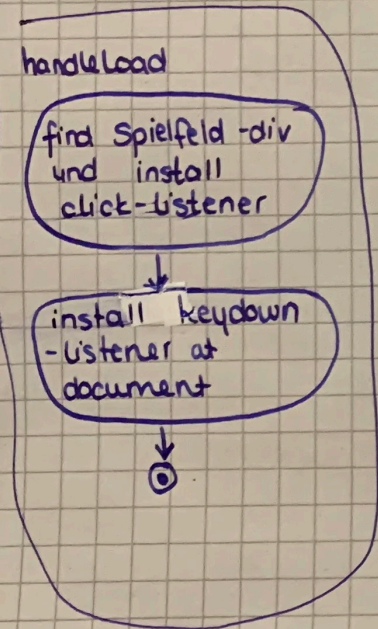 handleLoad
find Spielfeld -div
und install
click-Listener
install keydown
-Listener at
document